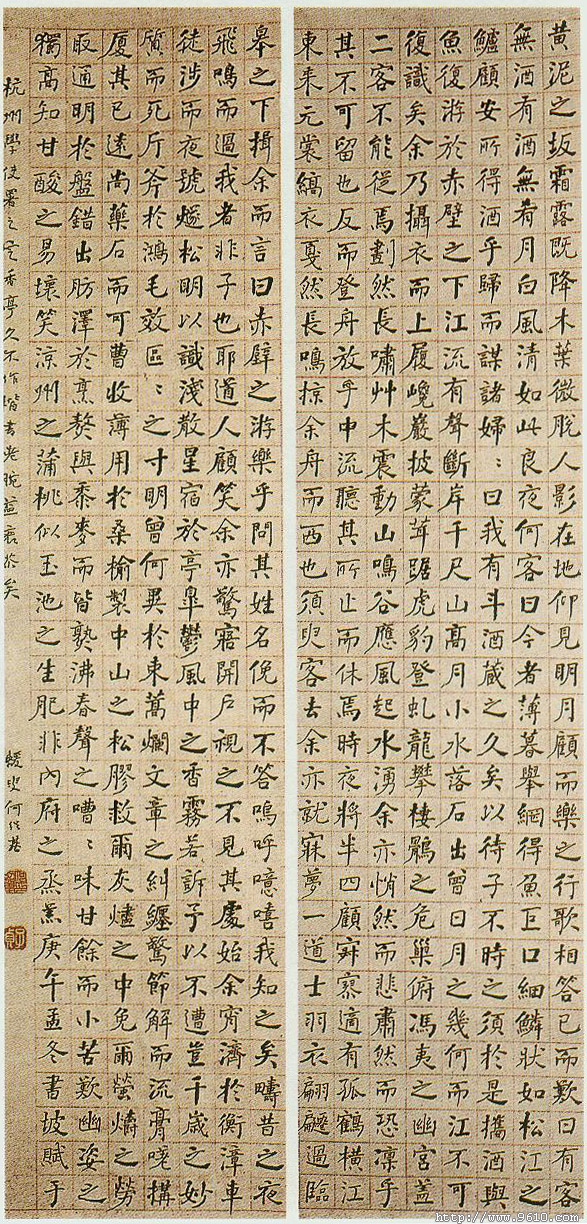 黄泥之坂霜露既降木葉微脫人影在地仰見明月顧而樂之行歌相答已而歎曰有客
無酒有酒無肴月白風清如此良夜何客曰今者薄暮舉網得魚巨口細鱗狀如松江之
鱸顧安所得酒乎歸而謀諸婦〻曰我有斗酒藏之久矣以待子不時之須於是攜酒與
魚復游於赤壁之下江流有聲斷岸千尺山高月小水落石出曾日月之幾何而江不可
復識矣余乃攝衣而上履巉巖披蒙茸踞虎豹登虬龍攀棲鶻之危巢俯馮夷之幽宮蓋
二客不能從焉劃然長嘯艸木震動山鳴谷應風起水湧余亦悄然而悲肅然而恐凜乎
其不可留也反而登舟放乎中流聽其所止而休焉時夜將半四顧寂寥適有孤鶴橫江
東来元裳縞衣戛然長鳴掠余舟而西也須臾客去余亦就寐夢一道士羽衣翩躚過臨
皋之下揖余而言曰赤壁之游樂乎問其姓名俛而不答嗚呼噫嘻我知之矣疇昔之夜
飛鳴而過我者非子也耶道人顧笑余亦驚寤開戶視之不見其處始余宵濟於衡漳車
徒涉而夜號燧松明以識淺散星宿於亭皋鬱風中之香霧若訴予以不遭豈千歲之妙
質而死斤斧於鴻毛效區〻之寸明曾何異於束蒿爛文章之糾纏驚節解而流膏嗟構
廈其已遠尚藥石而可曹收薄用於桑榆製中山之松醪救爾灰燼之中免爾螢爝之勞
取通明於盤錯出肪澤於烹熬與黍麥而皆熟沸春聲之嘈〻味甘餘而小苦歎幽姿之
獨高知甘酸之易壞笑涼州之蒲桃似玉池之生肥非內府之烝羔庚午孟冬書坡賦于
杭州學使署之定香亭久不作楷書老腕益 矣 蝯叟何紹基
http://www.9610.com